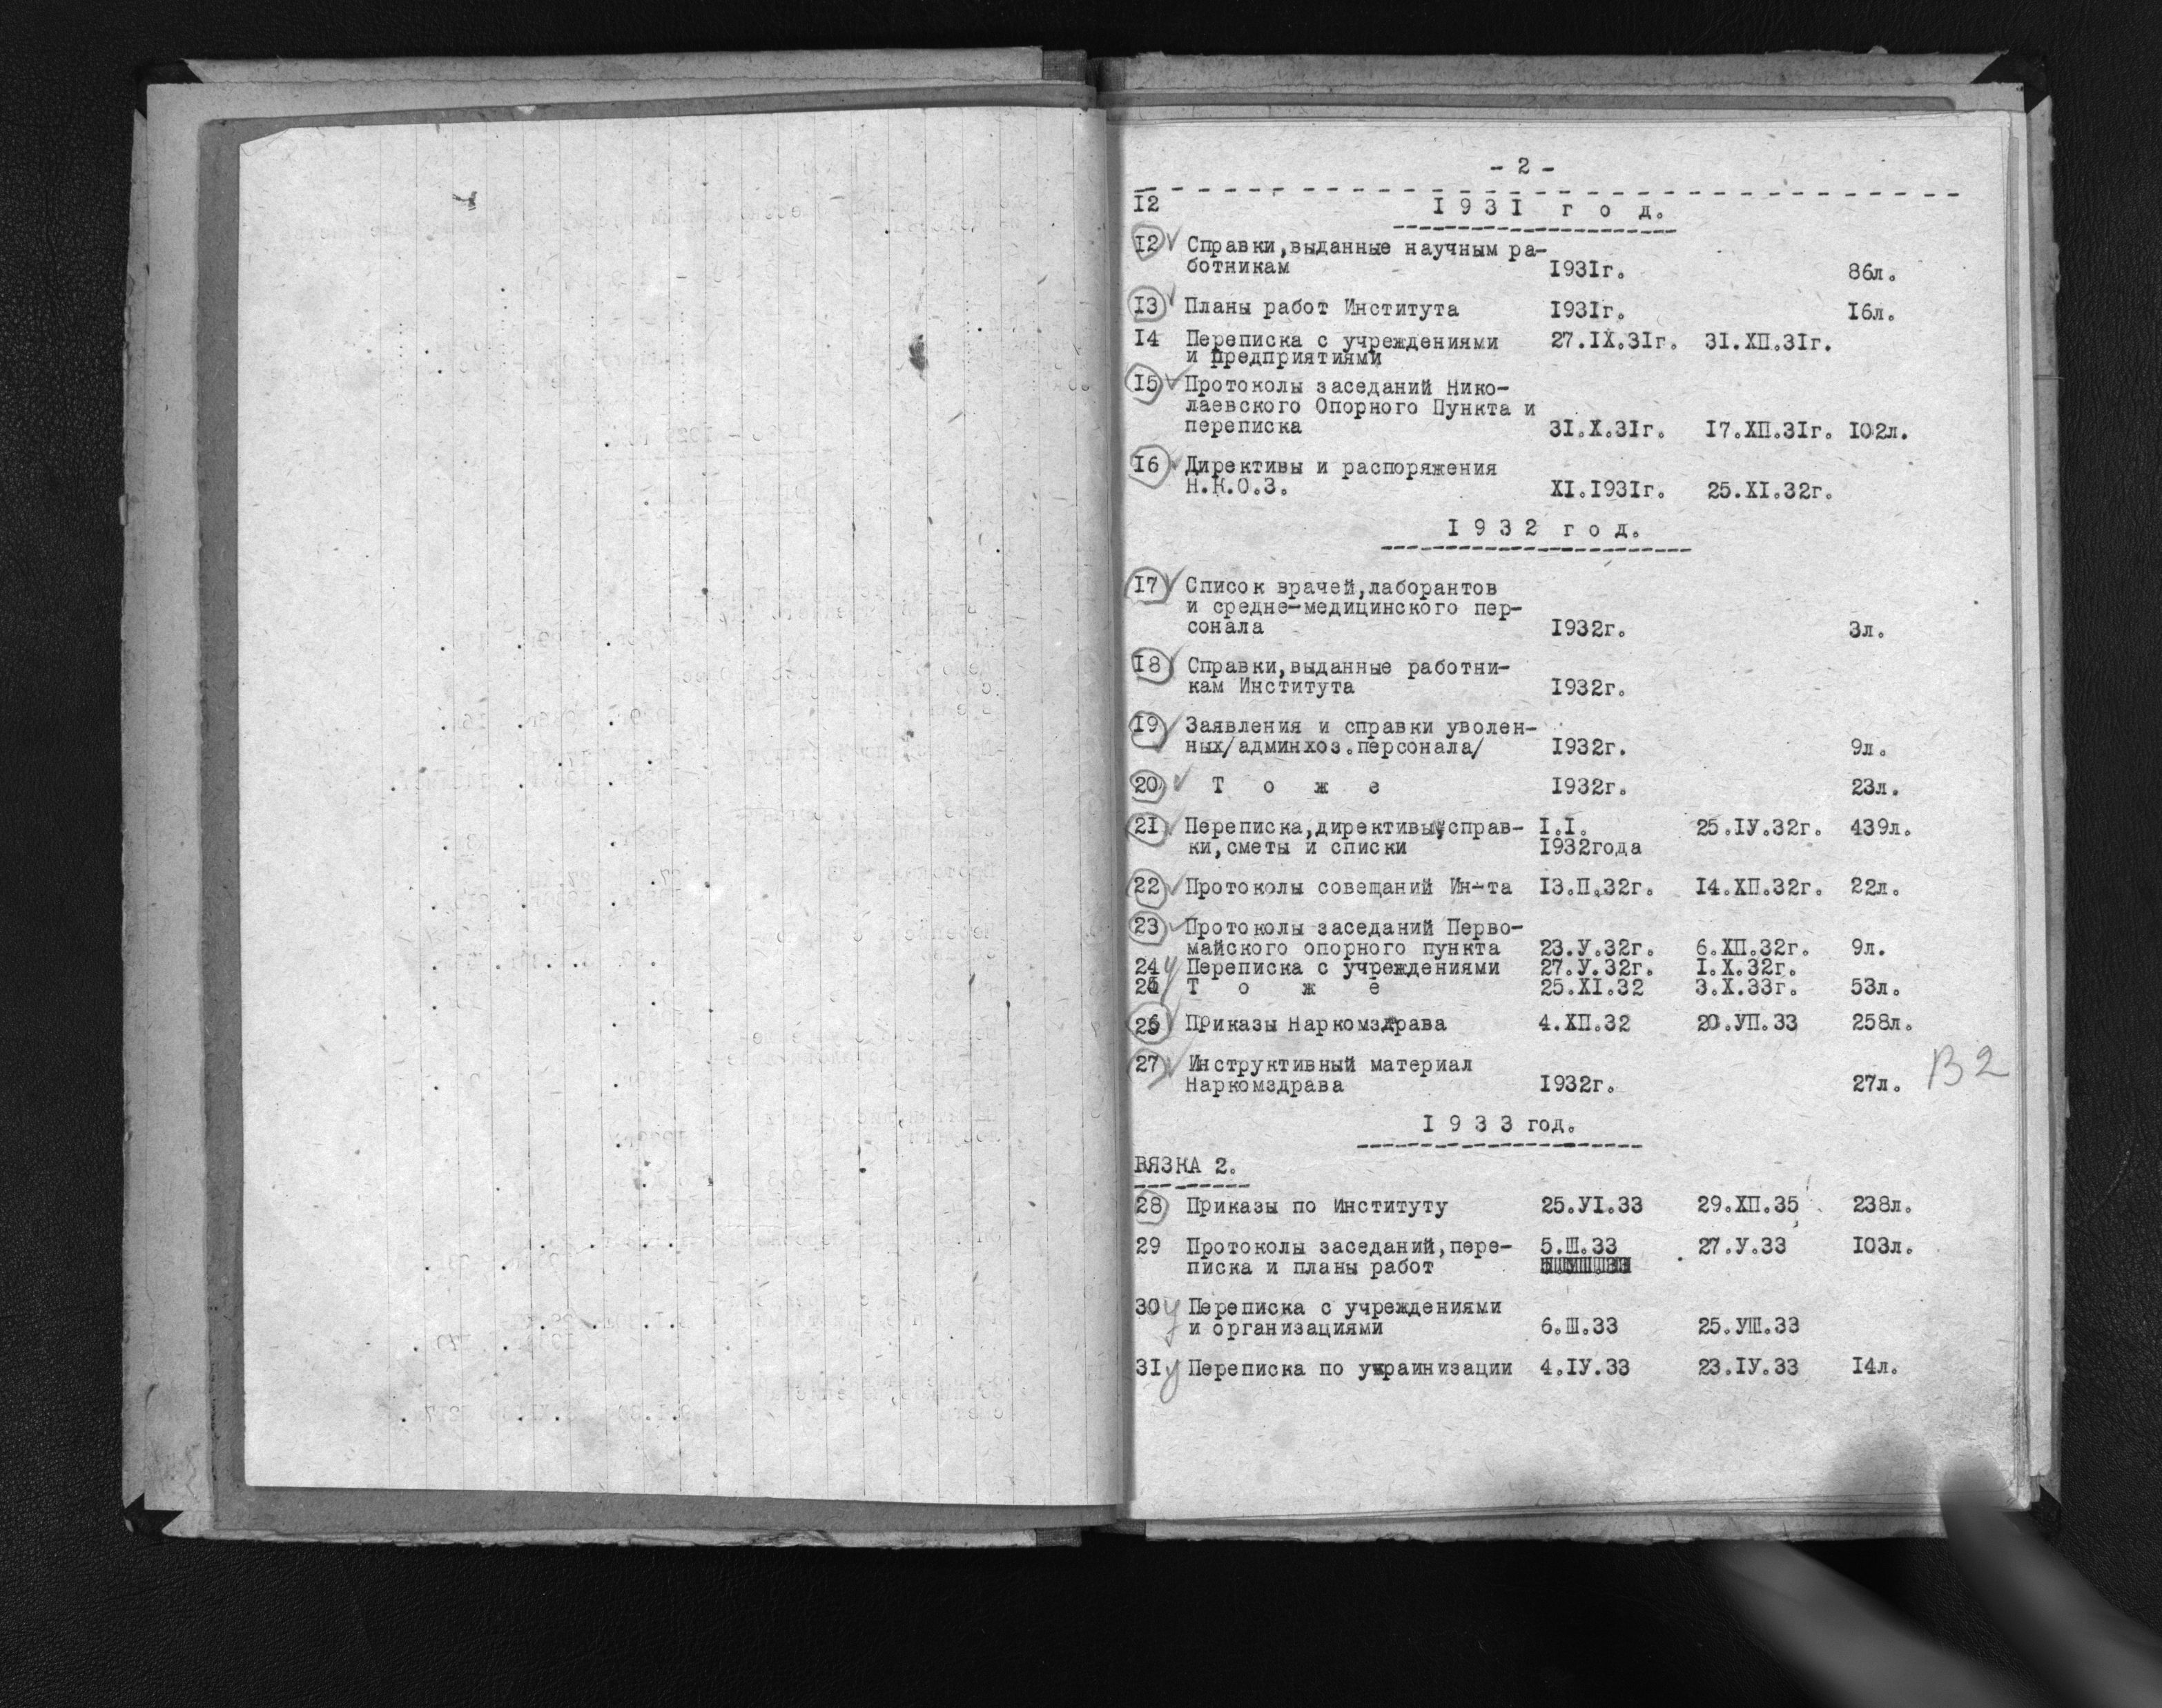 - 2 -
I2 I 9 3 I г о д.
I2 Справки,выданные научным ра-
ботникам I93Iг. 86л.
I3 Планы работ Института I93Iг. I6л.
I4 Переписка с учреждениями 27.IX.3Iг. 3I.ХП.3Iг.
и предприятиями
I5 Протоколы заседаний Нико-
лаевского Опорного Пункта и
переписка 3I.X.3Iг. I7.ХП.3Iг. I02л.
I6 Директивы и распоряжения
Н.К.О.З. XI.I93Iг. 25.XI.32г.
I 9 3 2 г о д.
I7 Список врачей,лаборантов
и средне-медицинского пер-
сонала I932г. 3л.
I8 Справки,выданные работни-
кам Института I932г.
I9 Заявления и справки уволен-
ных/админхоз.персонала/ I932г. 9л.
20 Т о ж е I932г. 23л.
2I Переписка,директивы,справ- I.I. 25.IУ.32г. 439л.
ки,сметы и списки I932года
22 Протоколы совещаний Ин-та I3.П.32г. I4.ХП.32г. 22л.
23 Протоколы заседаний Перво-
майского опорного пункта 23.У.32г. 6.ХП.32г. 9л.
24 Переписка с учреждениями 27.У.32г. I.X.32г.
Т о ж е 25.XI.32 3.X.33г. 53л.
26 Приказы Наркомздрава 4.ХП.32 20.УП.33 258л.
27 Инструктивный материал
Наркомздрава I932г. 27л. В2
I 9 3 3 год.
ВЯЗКА 2.
28 Приказы по Институту 25.УI.33 29.ХП.35 238л.
29 Протоколы заседаний,пере- 5.Ш.33 27.У.33 I03л.
писка и планы работ
30 Переписка с учреждениями
и организациями 6.Ш.33 25.УШ.33
3I Переписка по украинизации 4.IУ.33 23.IУ.33 I4л.